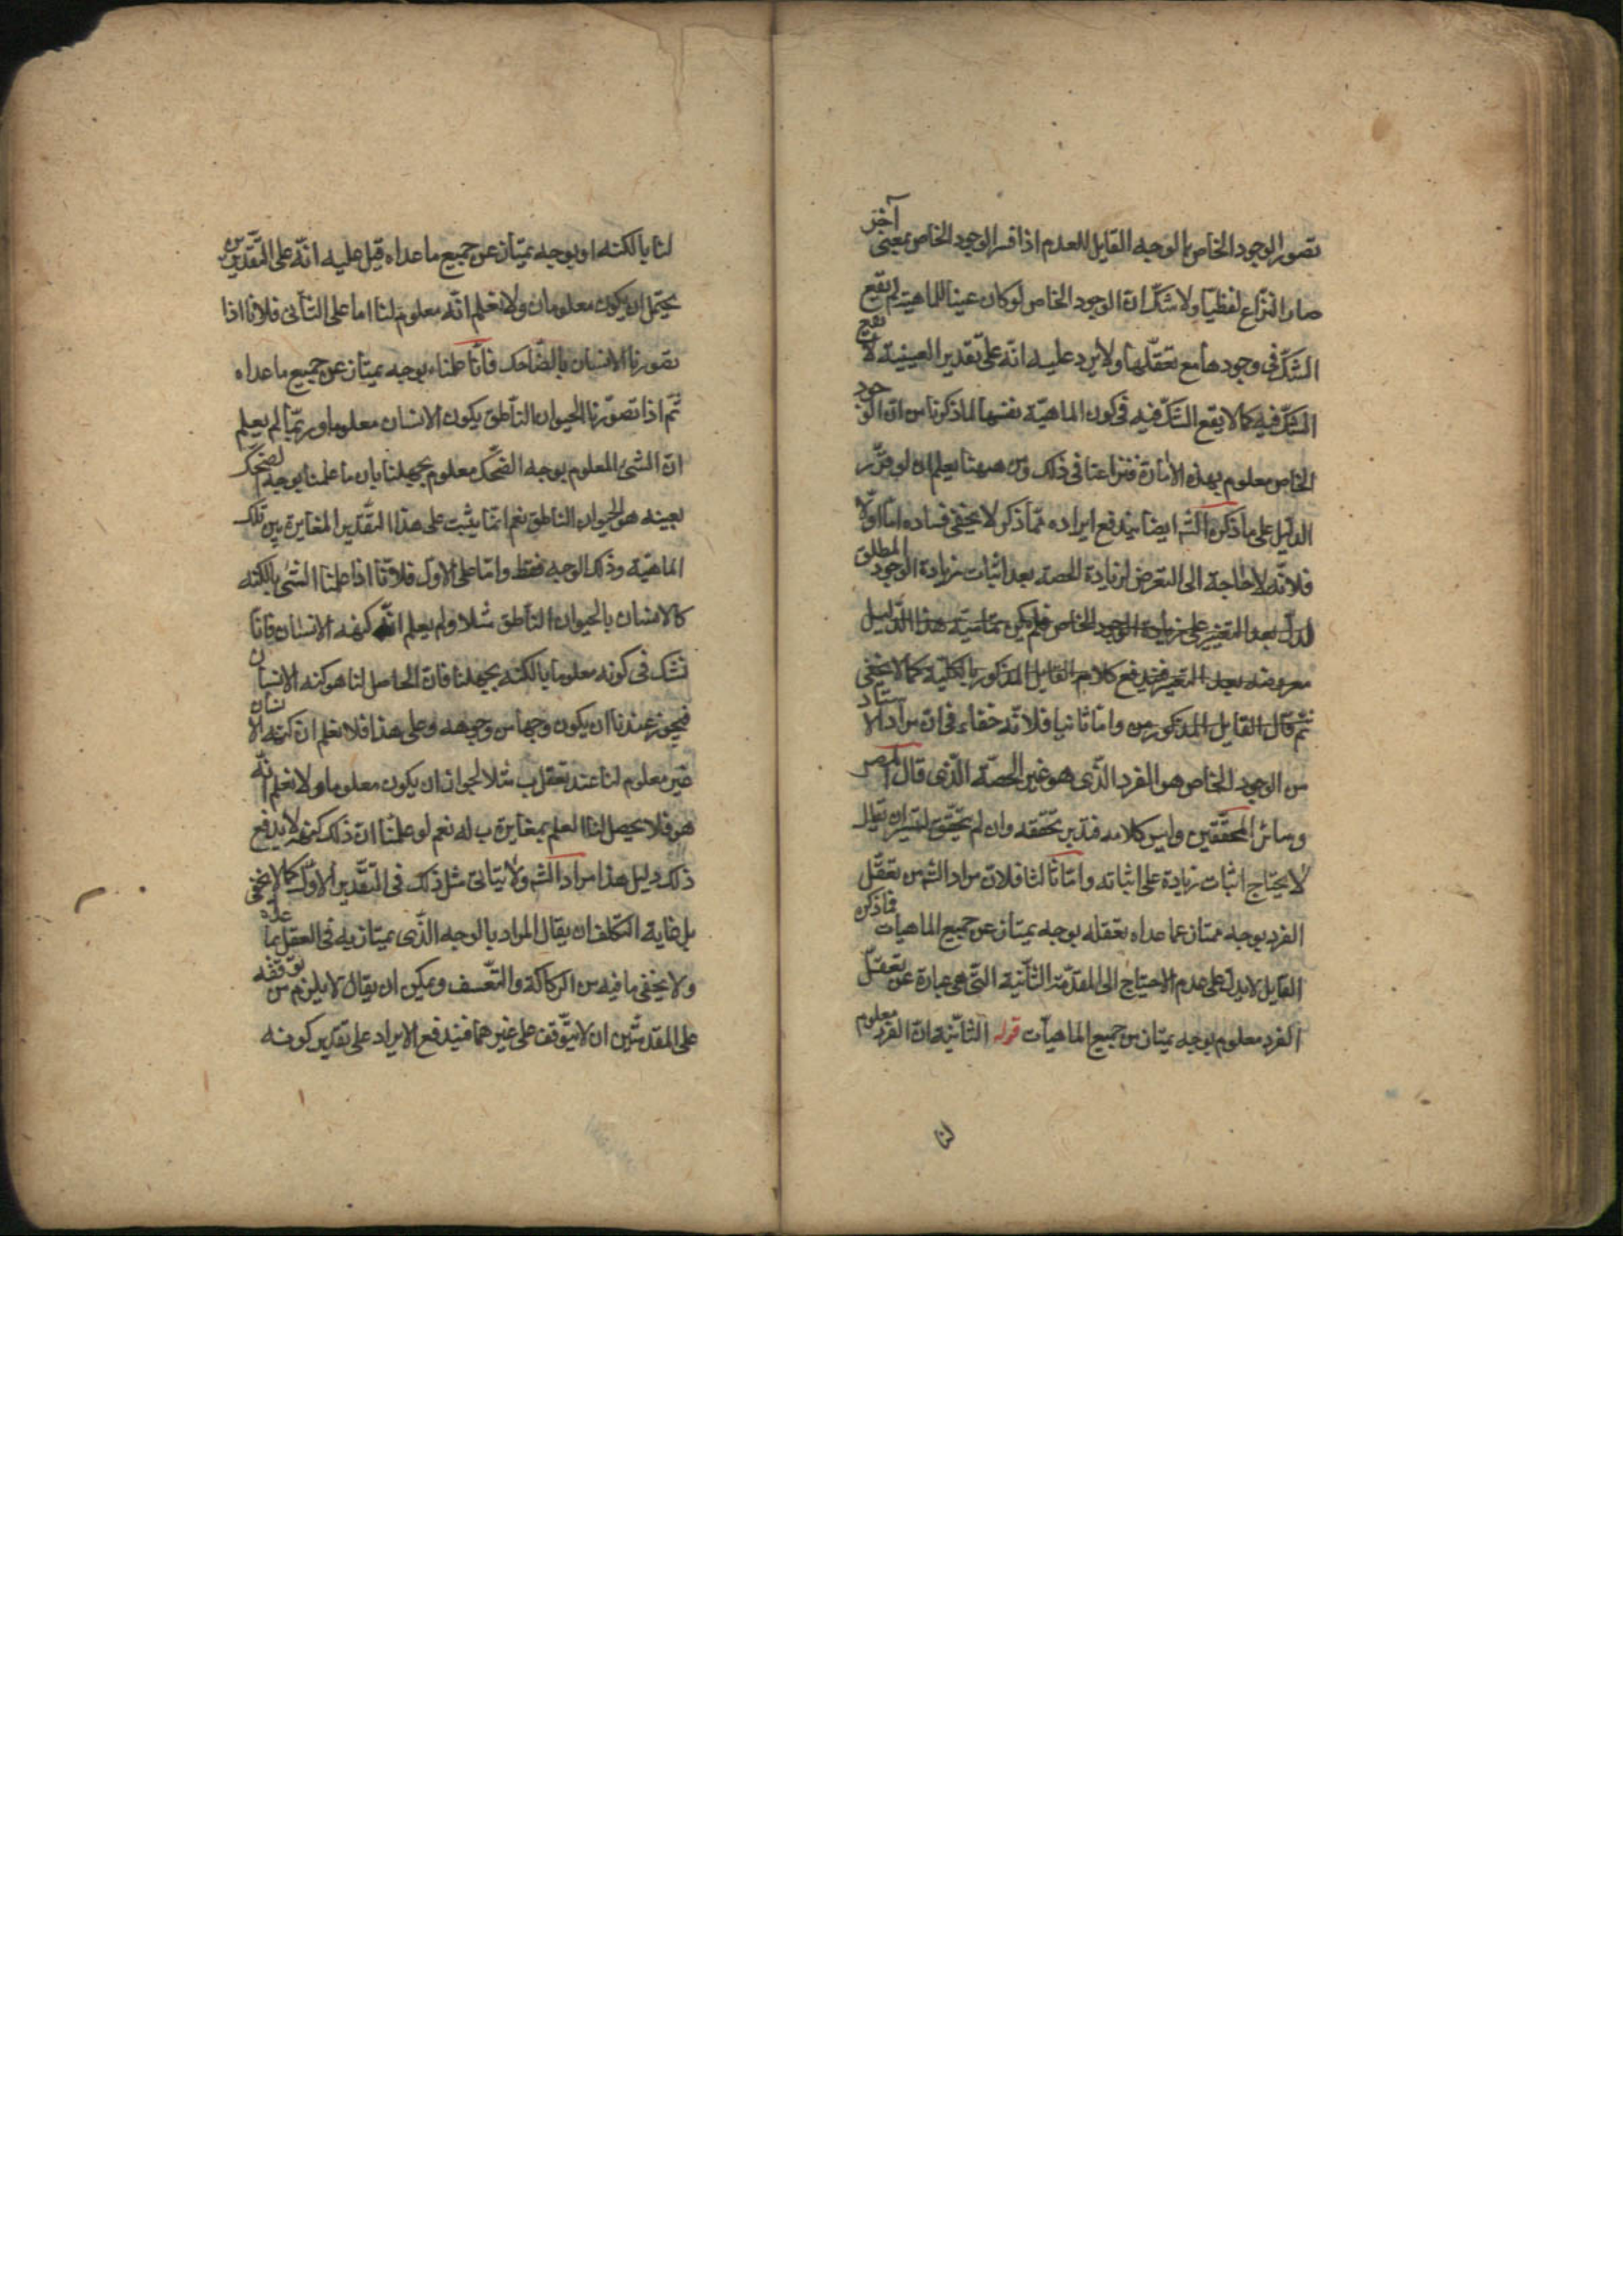 تصور الوجود الخاص بالوجه القايل للعدم اذا فسر الوجود الخاص بمعنى آخر
صار النزاع لفظيا ولا شك ان الوجود الخاص لو كان عينا للماهية لم يقع
الشك فى وجودها مع تعقلها ولا يرد عليه انه على تقدير العينية لا يقع
الشك فيه كما لا يقع الشك فيه فى كون الماهية نفسها لما ذكرنا من ان الوجود
الخاص معلوم بهذه الامارة فنزاعنا فى ذلك ومن ههنا يعلم ان لو قرر
الدليل على ما ذكره الشـ ايضا يندفع ايراده مما ذكر لا يخفى فساده اما اولا
فلانه لا حاجة الى التعرض لزيادة الحصة بعد اثبات زيادة الوجود المطلق
بعد التغيير على زيادة الوجود الخاص فلم يكن هذا الدليل
بعد التغيير كلام القايل المذكور بالكلية كما لا يخفى
ثم قال القايل المذكور من واما ثانيا فلانه خفاء فى ان مراد الاستاد
من الوجود الخاص هو الفرد الذى هو غير الحصة الذى قال المصـ
وسائر المحققين وليس كلامه تحققه وان لم يتحقق ان يقال
لا يحتاج اثبات زيادة على اثباته واما ثالثا فلان مراد الشـ من تعقل
الفرد بوجه ممتاز عما عداه تعقله بوجه يمتاز عن جميع الماهيات فما ذكره
القايل لا يدل على عدم الاحتياج الى المقدمة الثانية التى هى عبارة عن تعقل
الفرد معلوم بوجه يمتاز من جميع الماهيات قوله الثانية ان الفرد معلوم
لنا
لنا بالكنه او بوجه يمتاز عن جميع ما عداه قيل عليه انه على التقديرين
يحتمل ان يكون معلوما ولا نعلم انه معلوم لنا اما على الثانى فلانا اذا
تصورنا الانسان بالضاحك فانا علمناه بوجه يمتاز عن جميع ما عداه
ثم اذا تصورنا الحيوان الناطق يكون الانسان معلوما وربما لم يعلم
ان الشئ المعلوم بوجه الضحك معلوم بجهلنا بان ما علمنا بوجه الضحك
بعينه هو الحيوان الناطق نعم انما يثبت على هذا التقدير المغايرة بين تلك
الماهية وذلك الوجه فقط واما على الاول فلانا اذا علمنا الشئ بالكنه
كالانسان بالحيوان الناطق مثلا ولم يعلم انه كنه الانسان فانا
نشك فى كونه معلوما بالكنه بجهلنا فان الحاصل لنا هو كنه الانسان
فيجوز عندنا ان يكون وجها من وجوهه وعلى هذا فلا نعلم ان كنه الانسان
غير معلوم لنا عند تعقل ب مثلا لجواز ان يكون معلوما ولا نعلم انه
هو فلا يحصل لنا العلم بمغايرة ب له نعم لو علمنا ان ذلك كنهه لا يدفع
ذلك دليل هذا مراد الشـ ولا يتاتى مثل ذلك فى التقدير الاول كما لا يخفى
بل غاية التكلف ان يقال المراد بالوجه الذى يمتاز به فى العقل عما عداه
ولا يخفى ما فيه من الركاكة والتعسف ويمكن ان يقال لا يلزم من توقفه
على المقدمتين ان لا يتوقف على غيرهما فيندفع الايراد على تقدير كونه